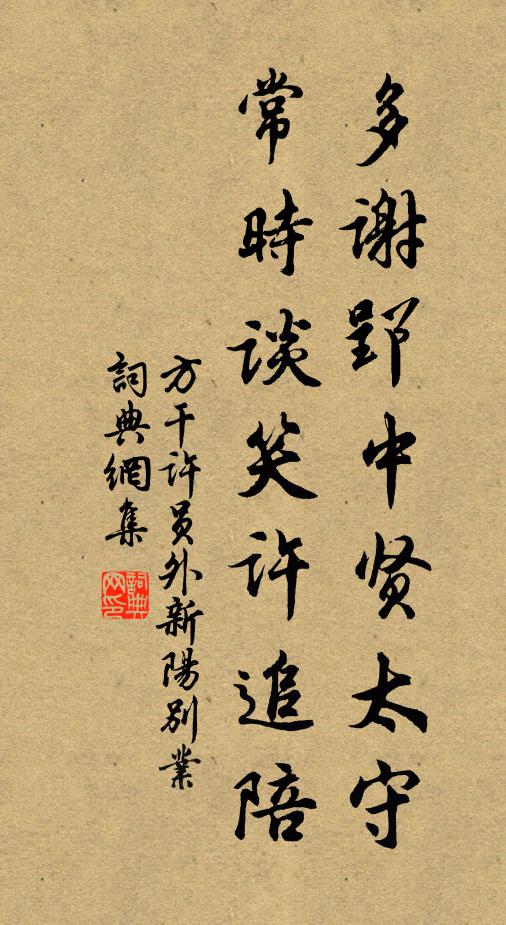 多谢郢中贤太守
常時谈笑许追陪
方干许員外新陽别業
詞典網集
詞典网印